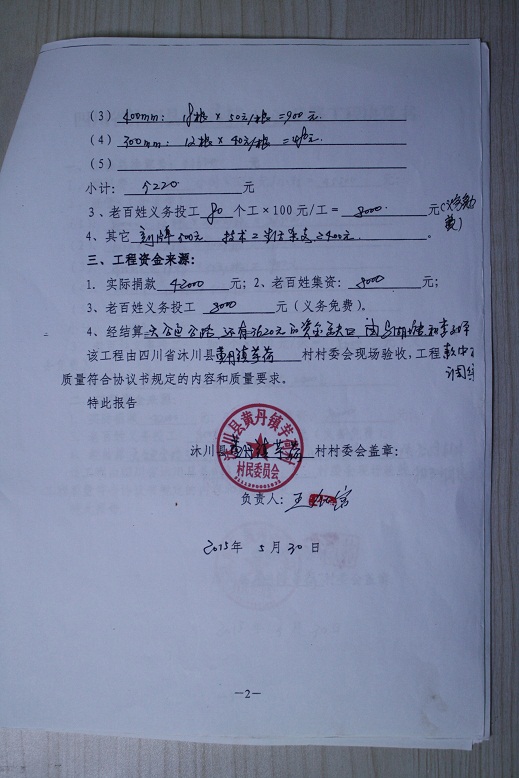 （3）400mm： 18根×50元/根=900元.
（4）300mm： 12根×40元/根=480元.
（5）
小计： 元
3、老百姓义务投工 80 个工×100元/工= 8000 元(义务免费)
4、其它 2400元 。
三、工程资金来源：
1. 实际捐款 42000 元；2、老百姓集资： 8000 元；
3、老百姓义务投工 8000 元（义务免费）。
4、经结算 还有3620元的资金缺口
该工程由四川省沐川县黄丹镇芊荷 村村委会现场验收，工程
质量符合协议书规定的内容和质量要求。
特此报告
沐川县黄丹镇芊荷村村民委员会
沐川县黄丹镇芊荷 村村委会盖章：
负责人：王
2015年 5 月 30 日
－2－